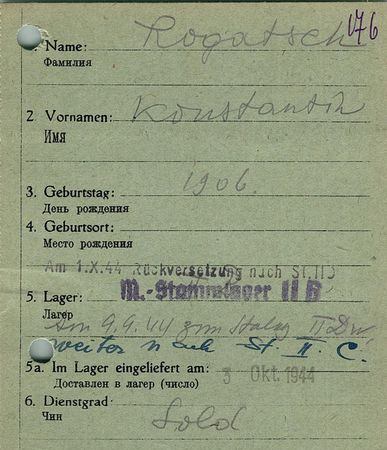 176
1. Name: Rogatsch
Фамилия
2 Vornamen: Konstantin
Имя
3. Geburtstag: 1906.
День рождения
4. Geburtsort:
Место рождения
Am 1.X.44 Rückversetzung nach St.IIB
M.-Stammlager II B
5. Lager:
Лагерь
Am 9.9.44 zum Stalag II
weiter nach St. II. C.
5a. Im Lager eingeliefert am: 3 Okt. 1944
Доставлен в лагер (число)
6. Dienstgrad: Sold
Чин